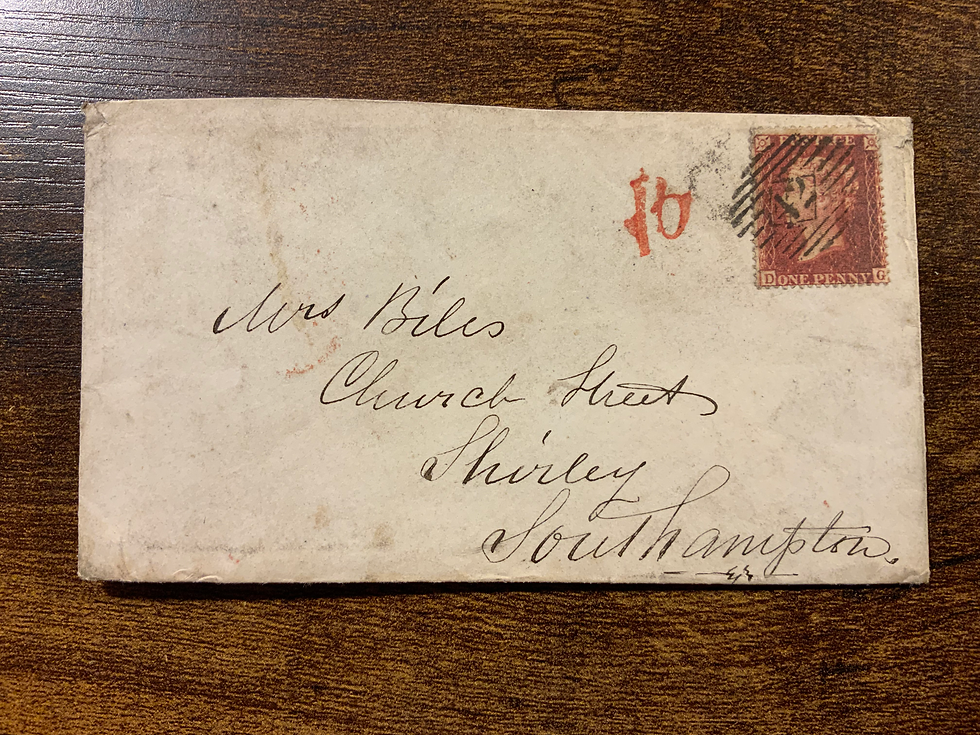 D ONE PENNY G
Mrs Biles
Church Street
Shirley
Southampton.